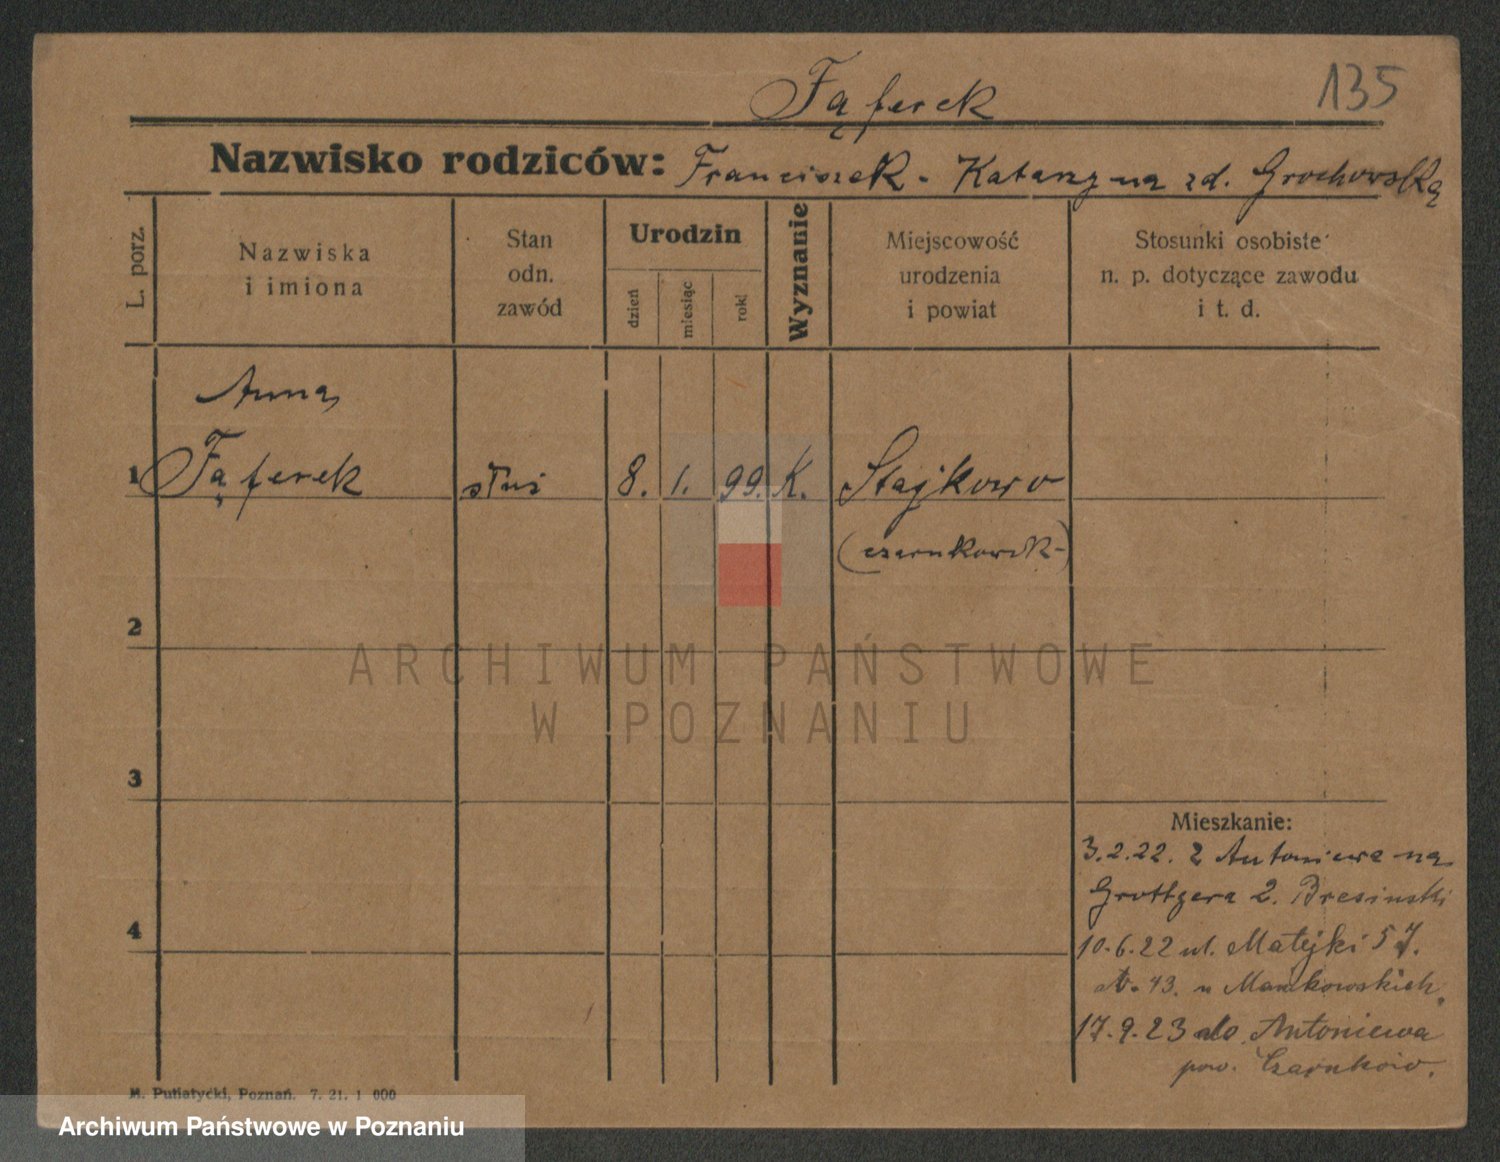 135
Fąferek
Nazwisko rodziców: Franciszek - Katarzyna zd. Grochowską
L. porz.
Nazwiska
i imiona
Stan
odn.
zawód
Urodzin
dzień
miesiąc
rok
Wyznanie
Miejscowość
urodzenia
i powiat
Stosunki osobiste
n. p. dotyczące zawodu
i t. d.
Anna
1 Fąferek służ 8. 1. 99. K. Stajkowo
(czarnkowsk-)
2
ARCHIWUM PAŃSTWOWE
W POZNANIU
3
Mieszkanie:
3.2.22. z Antoniewa na
Grottgera 2. Bresinski
4
10.6.22 ul. Matejki 57.
43. u Mankowskich.
17.9.23 do Antoniewa
pow. Czarnków.
M. Putiatycki, Poznań. 7. 21. 1 000
Archiwum Państwowe w Poznaniu